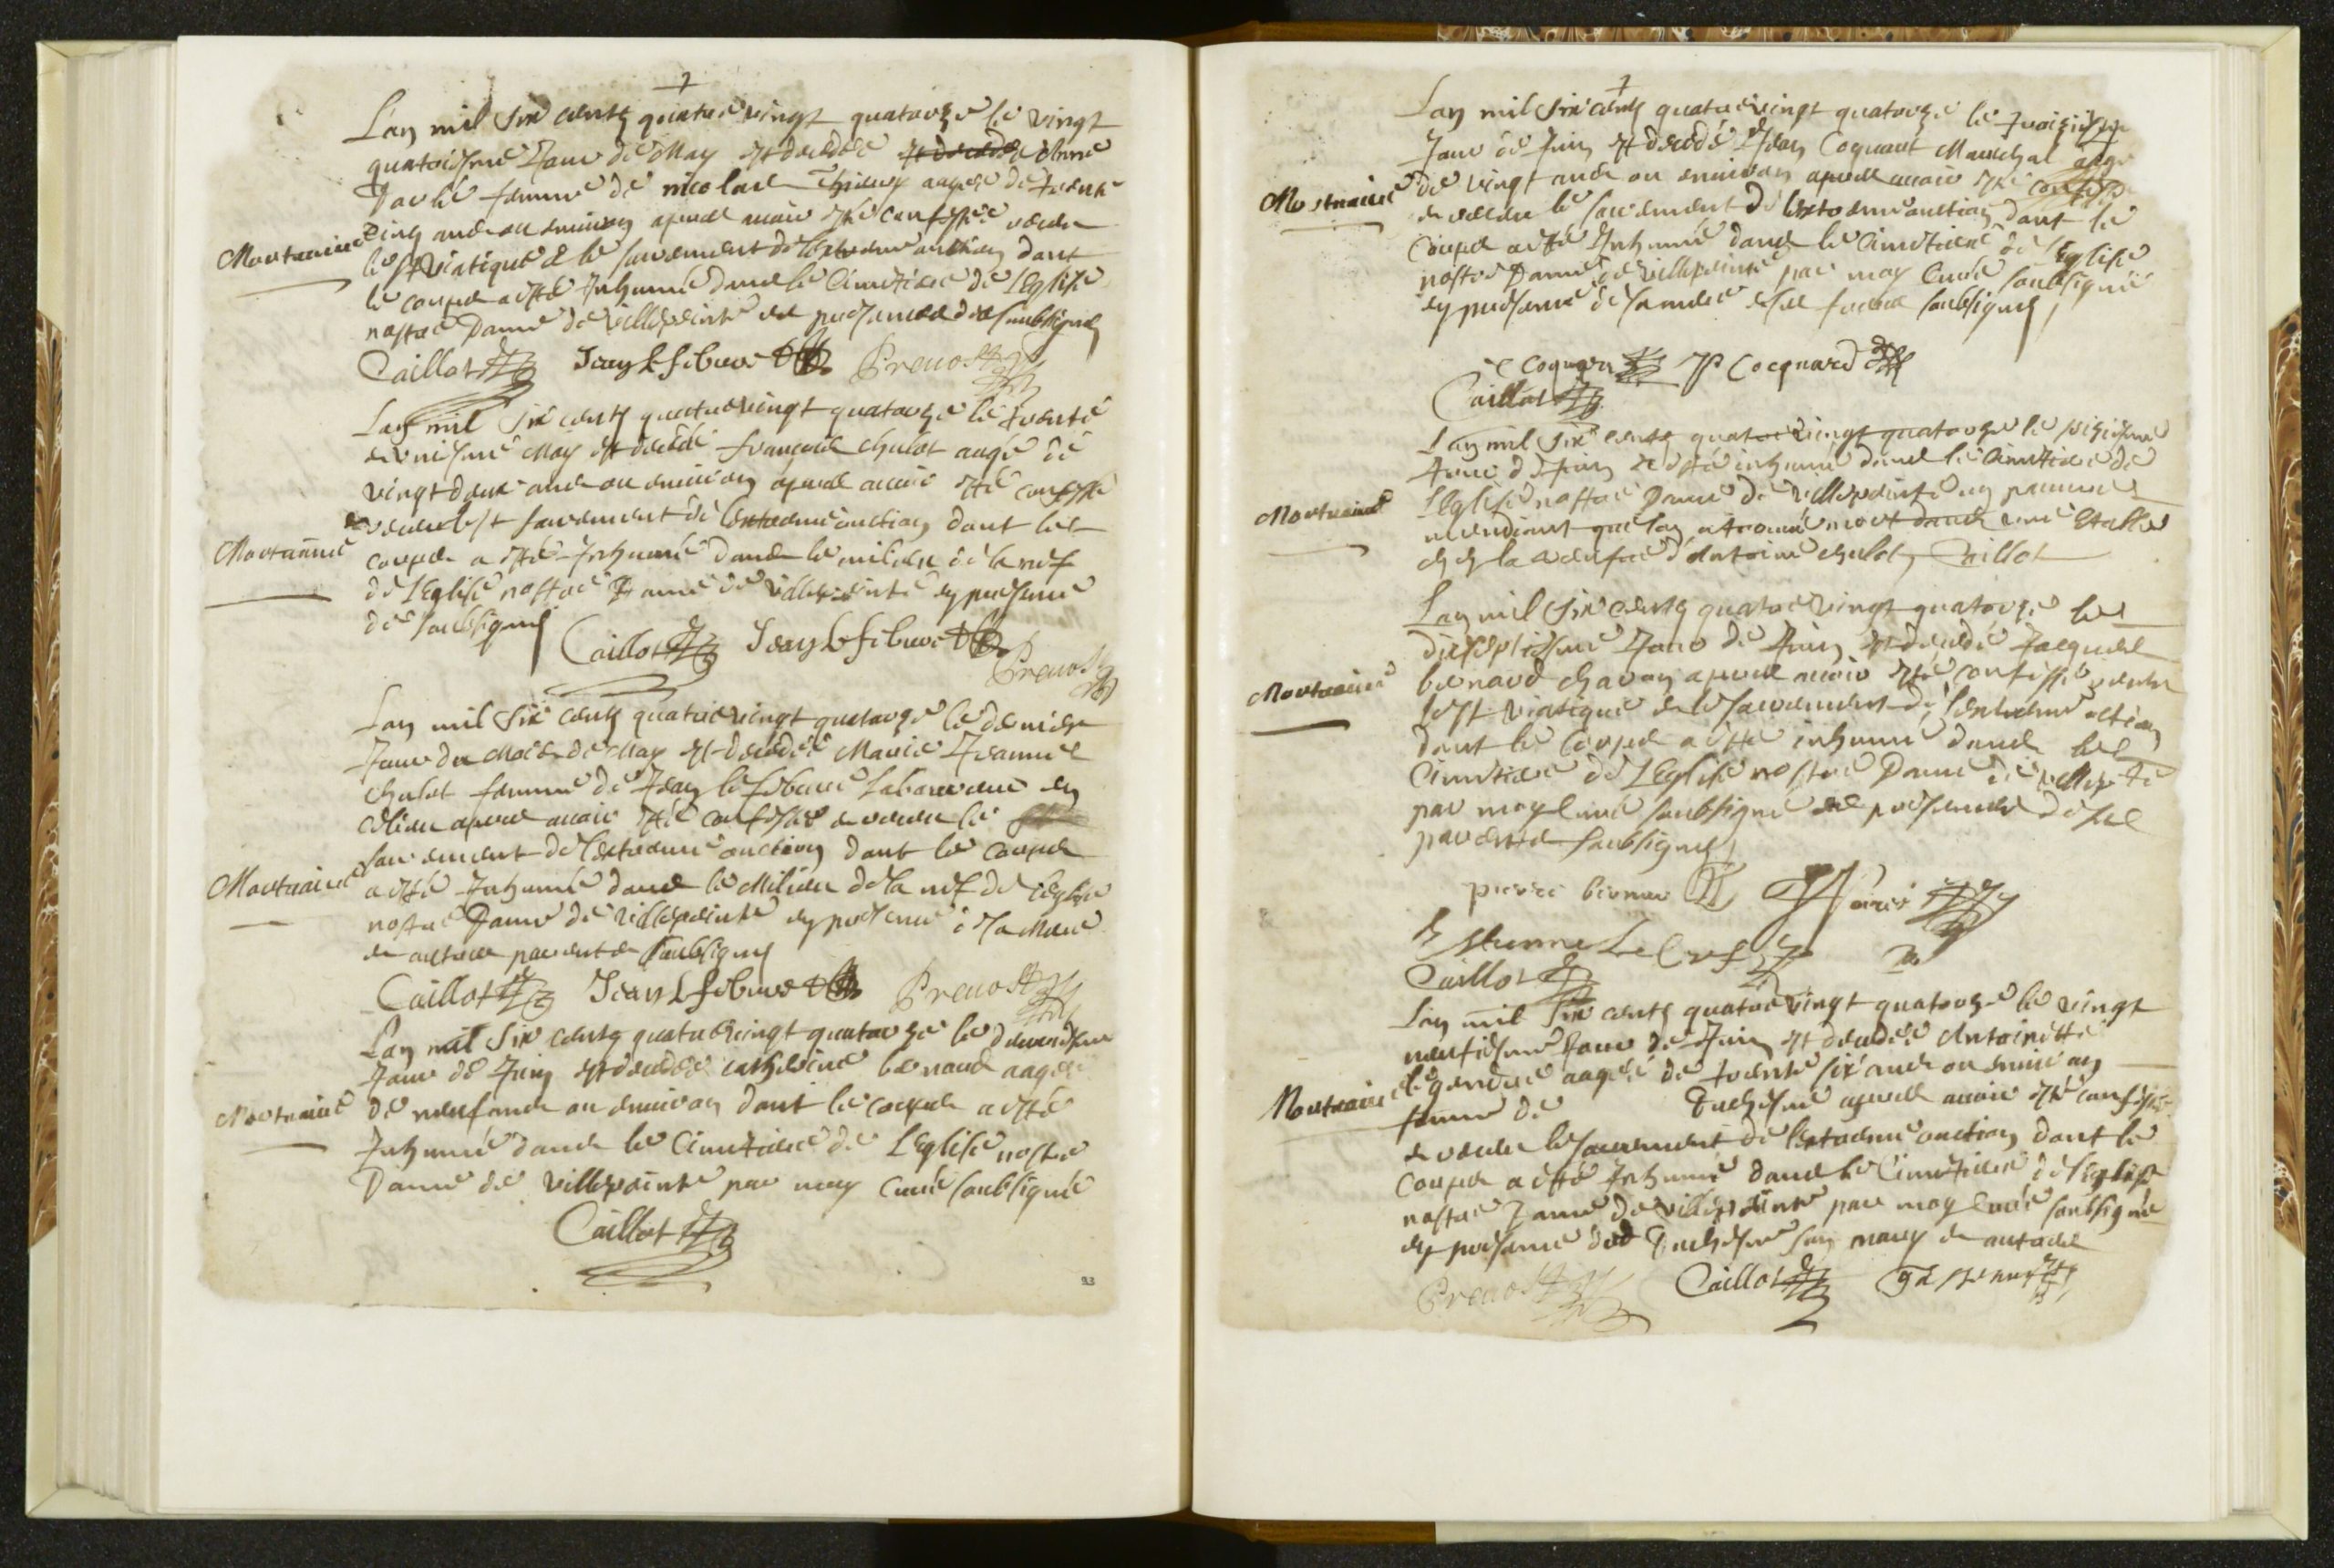 Lan mil six cents quatre vingt quatorze le vingt
quatriesme Jour de May est decedée est decedée Anne
femme de nicolas Thieury aagée de trente
cinq ans ou environ apres avoir esté confessée receu
Mortuaire
le st viatique & le sacrement de lextreme onction dont
le corps a esté Inhumé dans le Cimetiere de l'Eglise
nostre Dame de villepeinte es presences des soubsignes
Caillot Jean Lefebure Prevost
Lan mil six cents quatre vingt quatorze le trente
uniesme May est decedé francois chulot aagé de
vingt deux ans ou environ apres avoir esté confessé
receu le st sacrement de lextreme onction dont le
Mortuaire
corps a esté Inhumé dans le milieu de la nef
de l'Eglise nostre Dame de villepeinte en presence
des soubsignes
Caillot Jean Lefebure
Prevost
Lan mil six cents quatre vingt quatorze le dernier
Jour du Mois de May est decedée Marie Jeanne
chulot femme de Jean lefebure laboureur en
ce lieu apres avoir esté confessée & receu le
sacrement de lextreme onction dont le corps
Mortuaire
a esté Inhumé dans le Milieu de la nef de l'Eglise
nostre Dame de villepeinte en presence de sa Mere
& autres parents soubsignes
Caillot Jean Lefebure Prevost
Lan mil six cents quatre vingt quatorze le deuxiesme
Jour de Juin est decedée catherine bernard aagée
Mortuaire
de neuf ans ou environ dont le corps a esté
Inhumé dans le Cimetiere de L'Eglise nostre
Dame de villepeinte par moy Curé soubsigné
Caillot
93
Lan mil six cents quatre vingt quatorze le troisiesme
Jour de Juin est decedé Jean Coquart Mareschal aagé
Mortuaire
de vingt ans ou environ apres avoir esté confessé
& receu le sacrement de lextreme onction dont le
corps a esté Inhumé dans le Cimetiere de l'Eglise
nostre Dame de villepeinte par moy Curé soubsigné
en presence de sa mere & ses freres soubsignes
Coquart JP Cocquard
Caillot
Lan mil six cents quatre vingt quatorze le seiziesme
Jour de Juin a esté inhumé dans le Cimetiere de
Mortuaire
l'Eglise nostre Dame de villepeinte un pauvre
mendiant que lon a trouvé mort dans une Etable
chez la veufve d'Antoine chulot Caillot
Lan mil six cents quatre vingt quatorze le
dixseptiesme Jour de Juin est decedé Jacques
Mortuaire
bernard charon apres avoir esté confessé receu
le st viatique & le sacrement de lextreme onction
dont le corps a esté inhumé dans le
Cimetiere de L'Eglise nostre Dame de villepte
par moy Curé soubsigné es presences de ses
parents soubsignes
pierre bernar
Estienne Le Cerf
Caillot
Lan mil six cents quatre vingt quatorze le vingt
neufiesme Jour de Juin est decedée Antoinette
legendre aagée de trente six ans ou environ
Mortuaire
femme de Duchesne apres avoir esté confessée
& receu le sacrement de lextreme onction dont le
corps a esté Inhumé dans le Cimetiere de l'Eglise
nostre Dame de villepeinte par moy Curé soubsigné
en presence dud Duchesne son mary & autres
Prevost Caillot